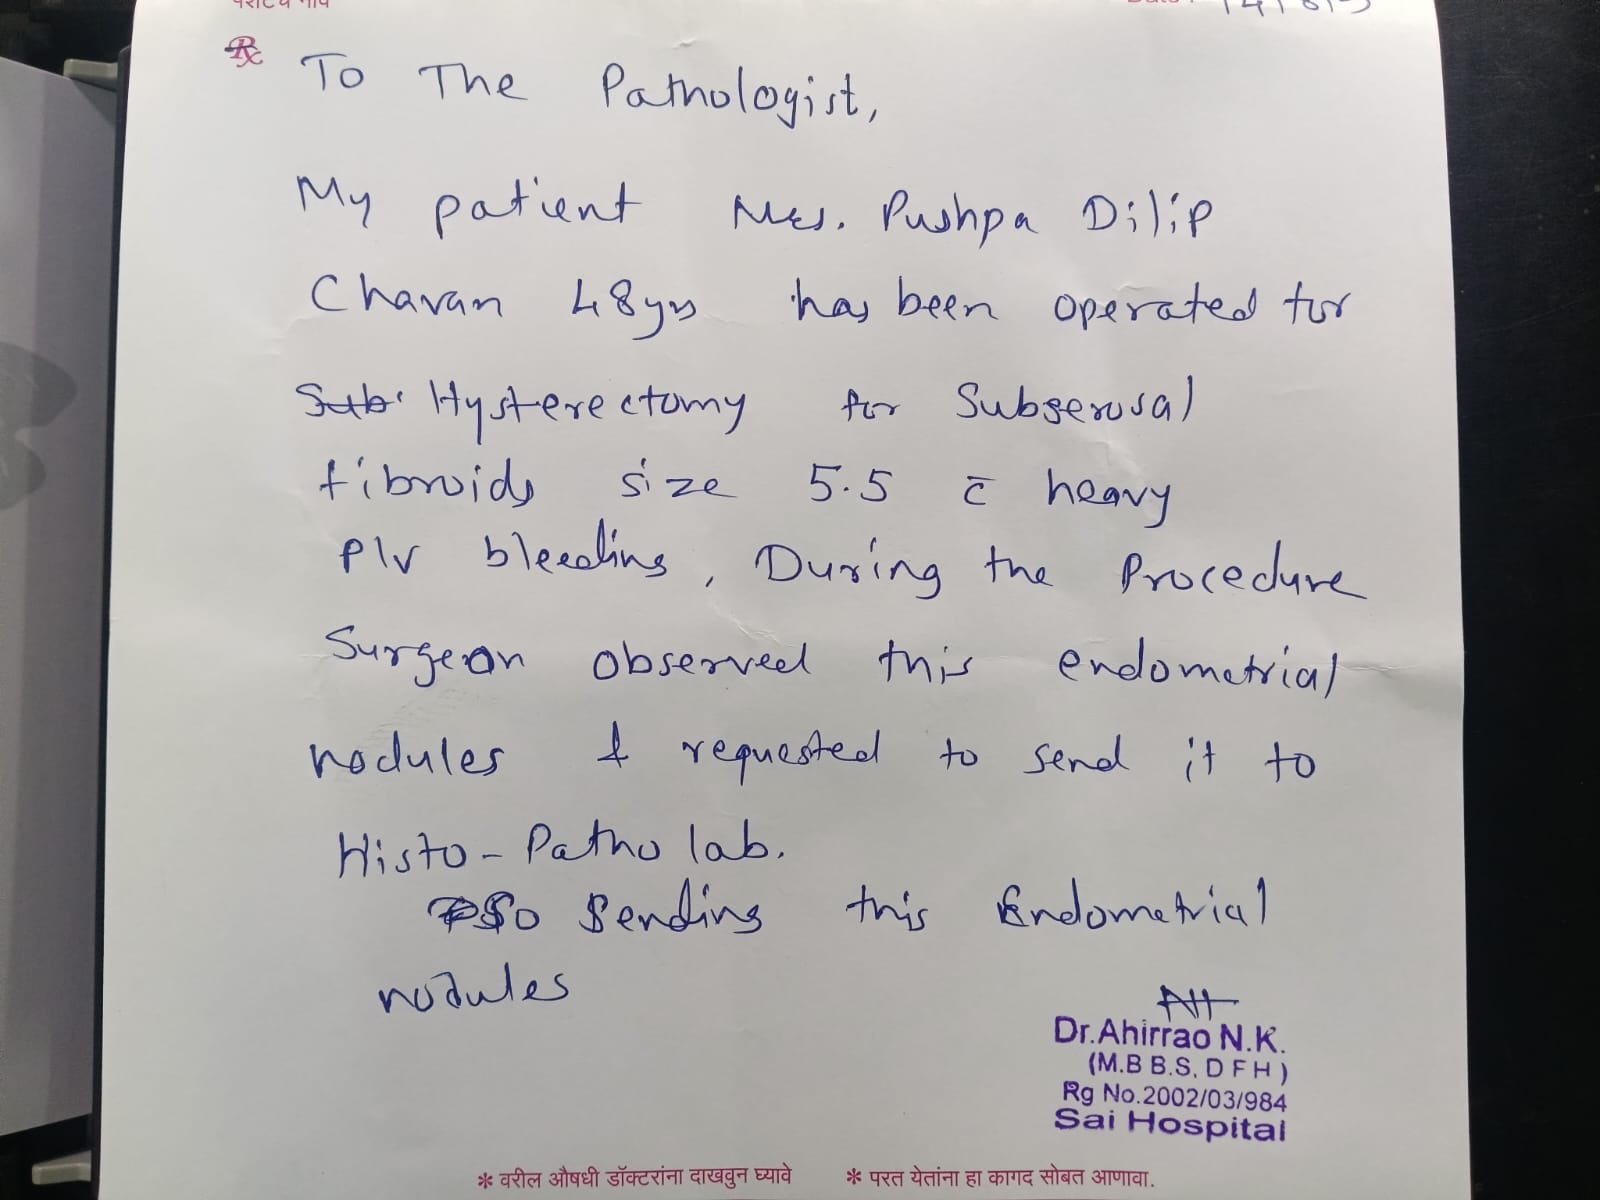 To The Pathologist,
My patient Mrs. Pushpa Dilip
Chavan 48yrs has been operated for
Sub. Hysterectomy for Subserosal
fibroids size 5.5 c̄ heavy
P/v bleeding, During the Procedure
Surgeon observed this endometrial
nodules & requested to send it to
Histo-Patho lab.
So Sending this Endometrial
nodules
Dr.Ahirrao N.K.
(M.B B.S, D F H)
Rg No.2002/03/984
Sai Hospital
* वरील औषधी डॉक्टरांना दाखवुन घ्यावे * परत येतांना हा कागद सोबत आणावा.